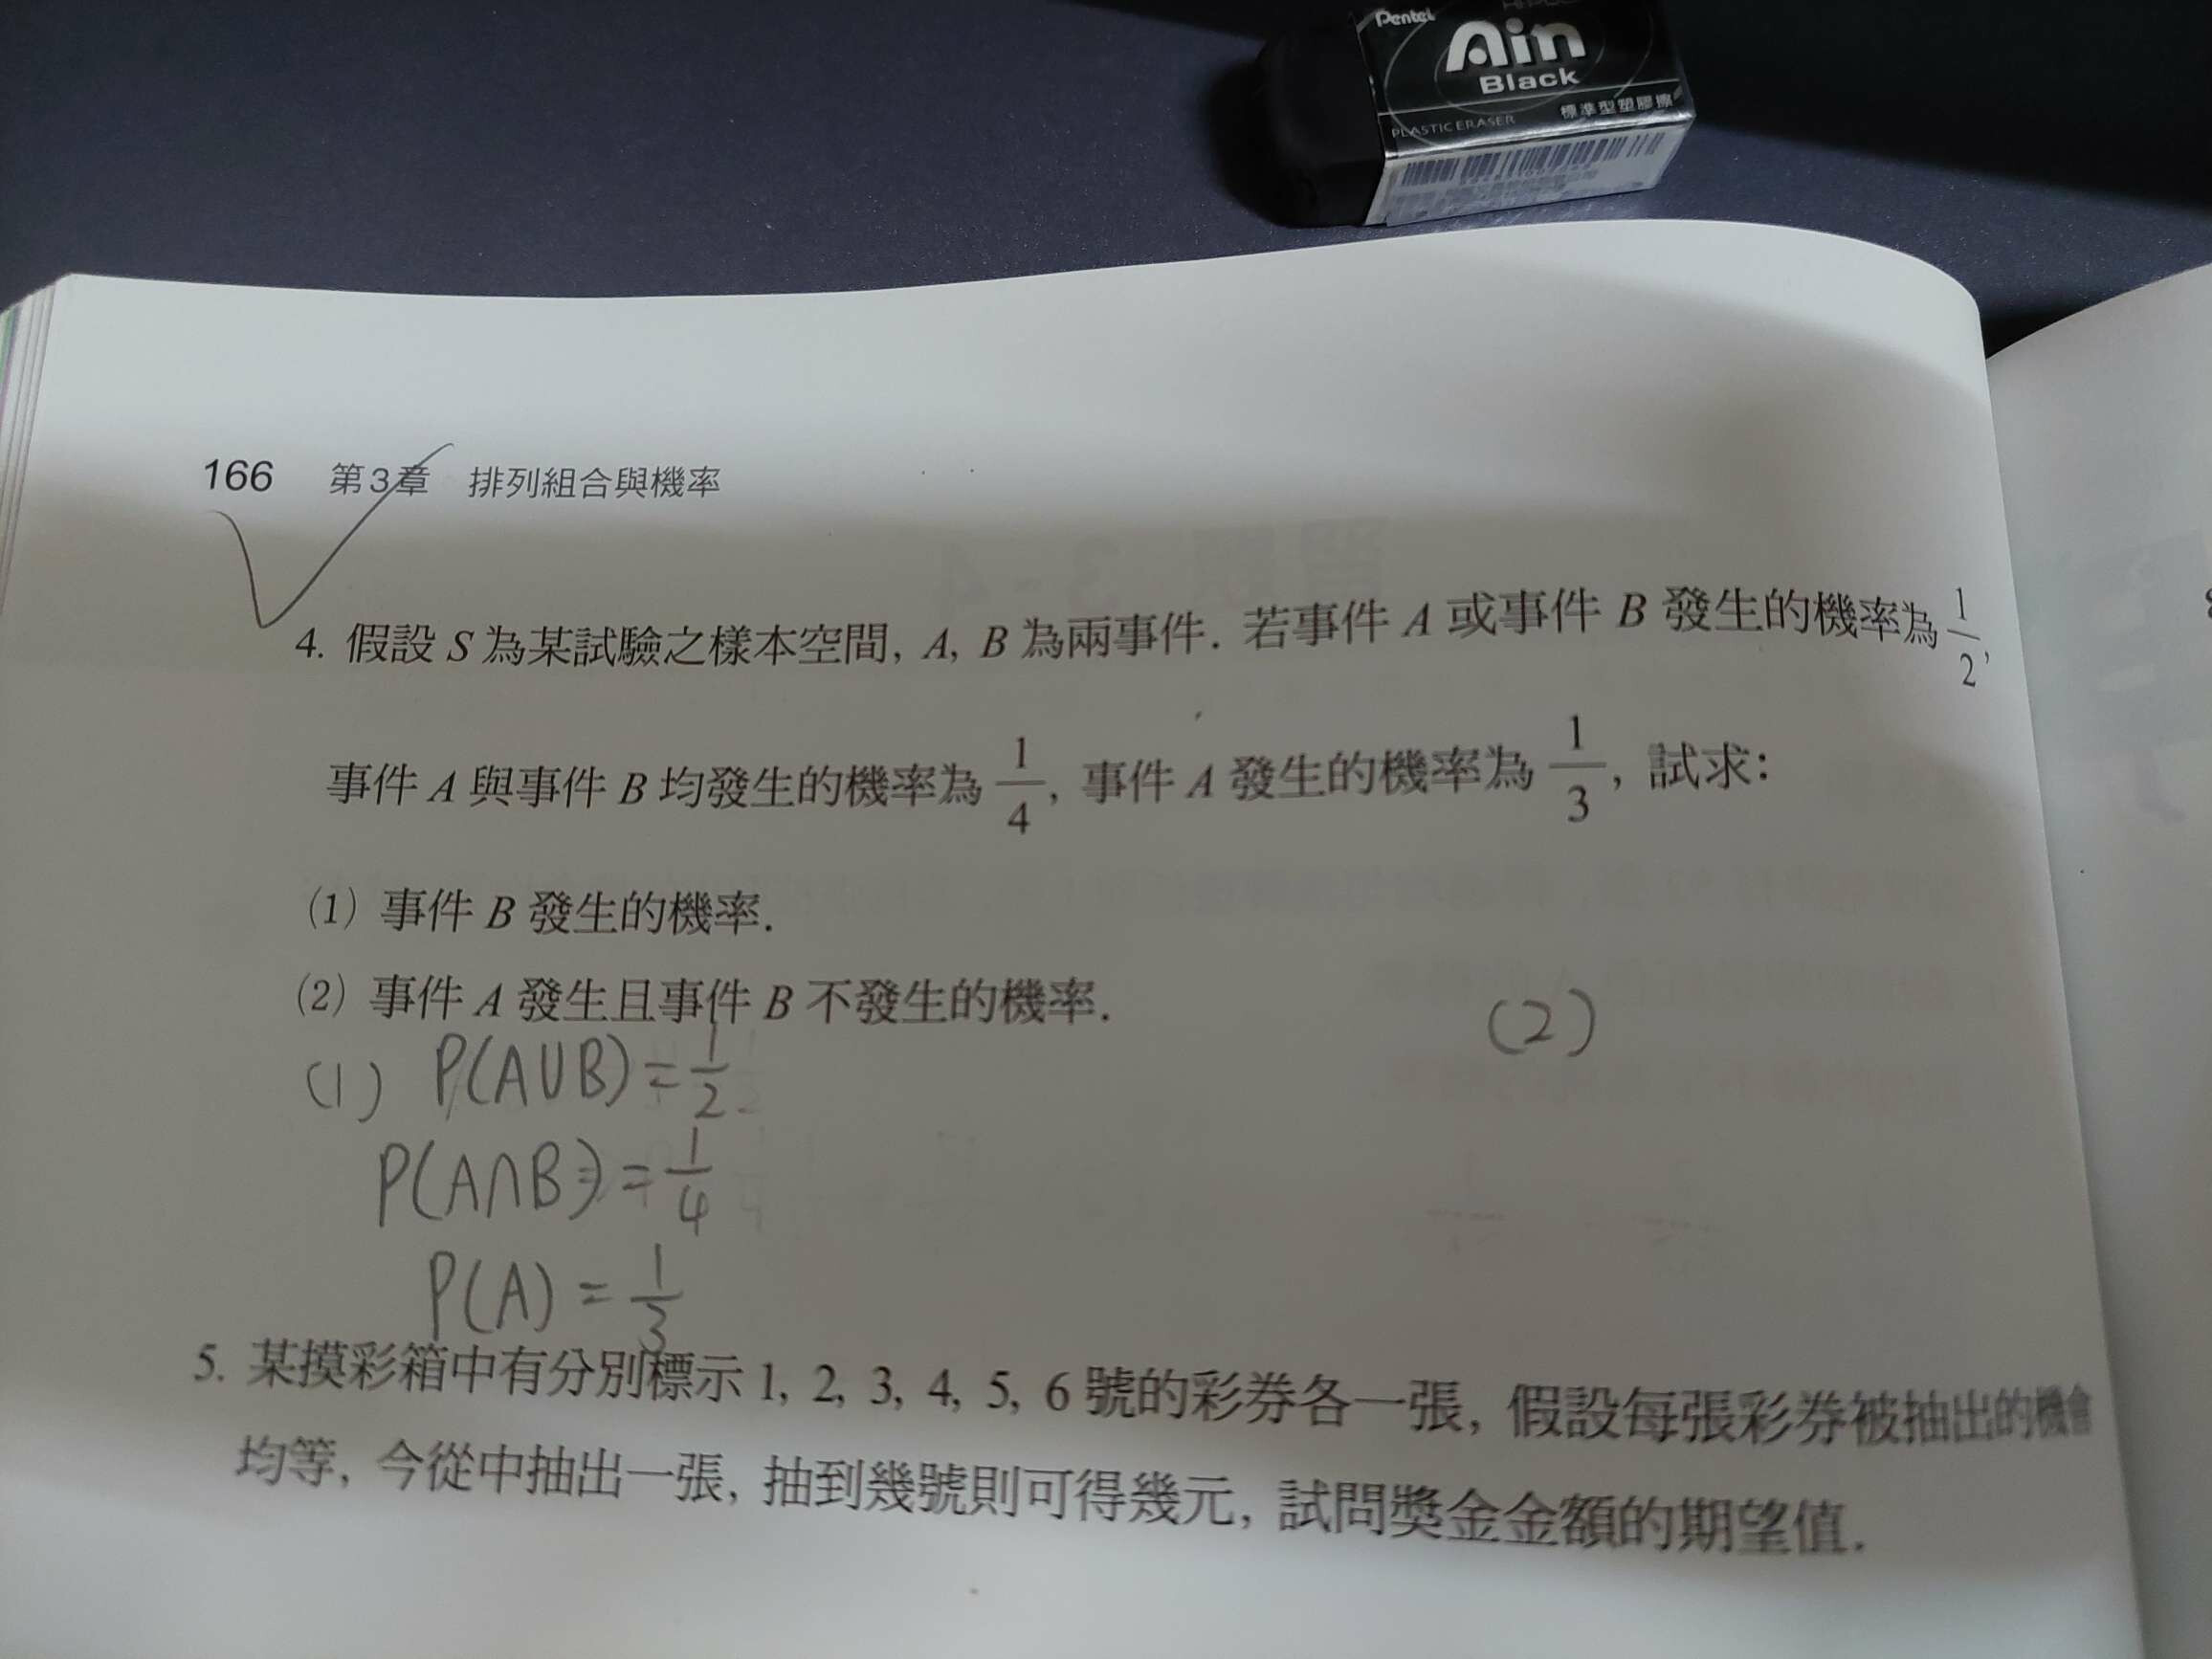 Pentel
Ain
Black
PLASTIC ERASER 標準型塑膠擦
166 第3章 排列組合與機率
4. 假設 S 為某試驗之樣本空間, A, B 為兩事件. 若事件 A 或事件 B 發生的機率為 1/2,
事件 A 與事件 B 均發生的機率為 1/4, 事件 A 發生的機率為 1/3, 試求:
(1) 事件 B 發生的機率.
(2) 事件 A 發生且事件 B 不發生的機率.
(1) P(A∪B) = 1/2
P(A∩B) = 1/4
P(A) = 1/3
(2)
5. 某摸彩箱中有分別標示 1, 2, 3, 4, 5, 6 號的彩券各一張, 假設每張彩券被抽出的機會
均等, 今從中抽出一張, 抽到幾號則可得幾元, 試問獎金金額的期望值.